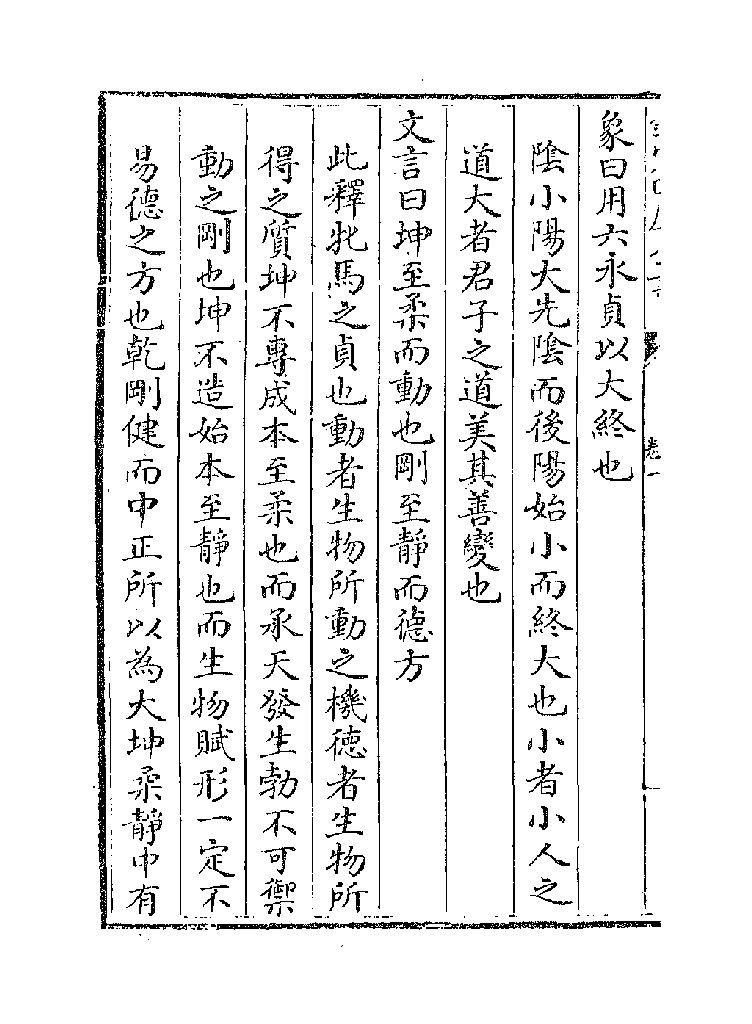 象曰用六永貞以大終也
陰小陽大先陰而後陽始小而終大也小者小人之
道大者君子之道美其善變也
文言曰坤至柔而動也剛至靜而德方
此釋牝馬之貞也動者生物所動之機德者生物所
得之質坤不專成本至柔也而承天發生勃不可禦
動之剛也坤不造始本至靜也而生物賦形一定不
易德之方也乾剛健而中正所以為大坤柔靜中有
卷一